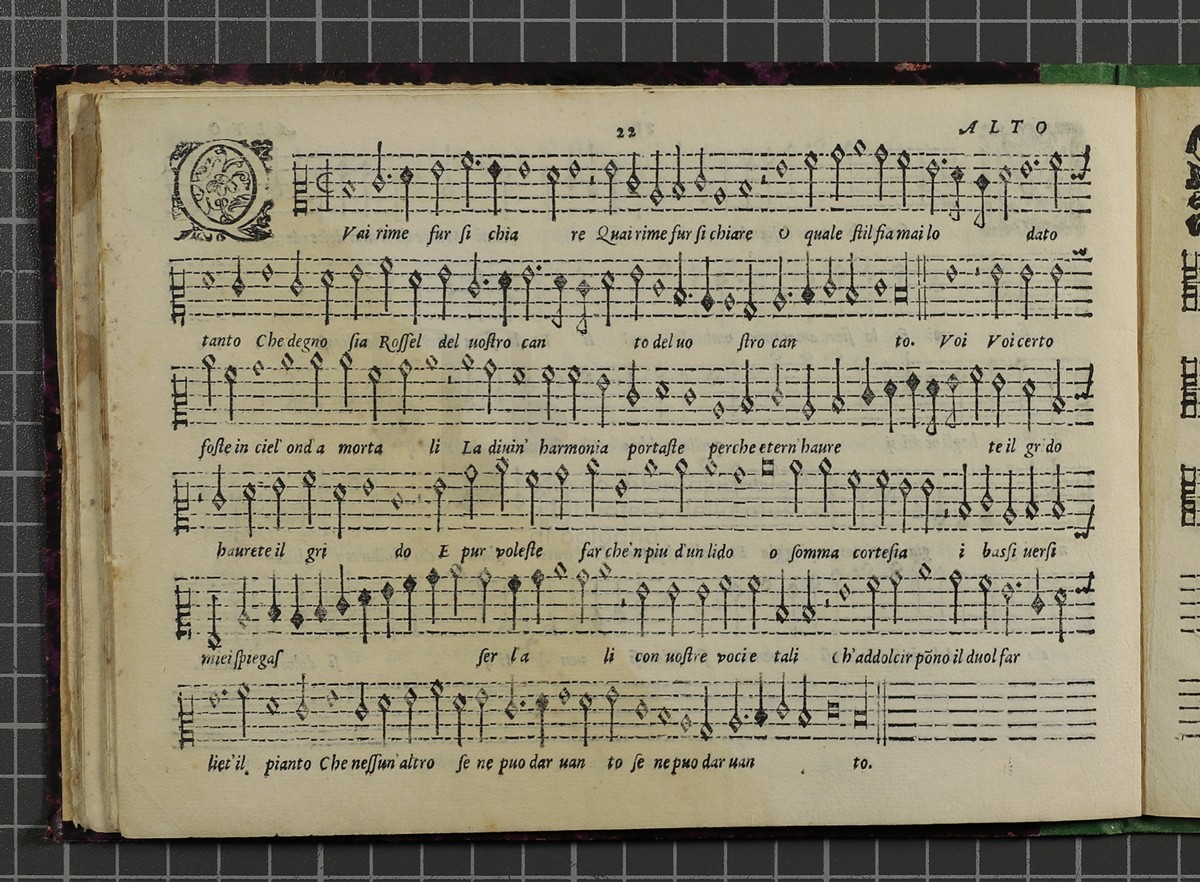 22
ALTO
QVai rime fur si chia re Quai rime fur si chiare O quale stil fia mai lo dato
tanto Che degno sia Rossel del uostro can to del uo stro can to. Voi Voi certo
foste in ciel' ond a morta li La diuin' harmonia portaste perche etern' haure te il grido
haurete il gri do E pur voleste far che'n piu d'un lido o somma cortesia i bassi uersi
miei spiegas ser l'a li con uostre voci e tali ch'addolcir põno il duol far
liet'il pianto Che nessun' altro se ne puo dar uan to se ne puo dar uan to.